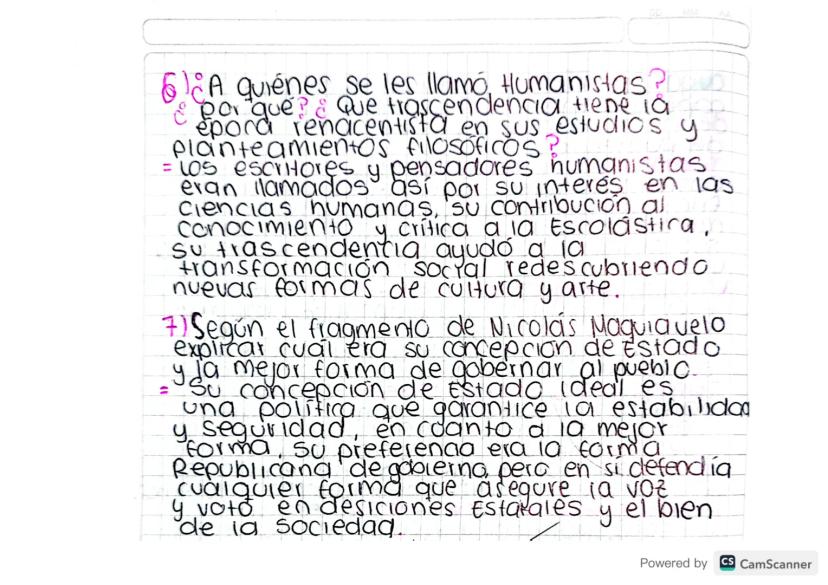 6) ¿A quiénes se les llamó Humanistas?
¿por qué? ¿Que trascendencia tiene la
época renacentista en sus estudios y
planteamientos filosóficos?
= los escritores y pensadores humanistas
eran llamados así por su interés en las
ciencias humanas, su contribución al
conocimiento y crítica a la Escolástica,
su trascendentia ayudó a la
transformación social redescubriendo
nuevas formas de cultura y arte.
7) Según el fragmento de Nicolás Maquiavelo
explicar cuál era su concepción de Estado
y la mejor forma de gobernar al pueblo.
= Su concepción de Estado ideal es
una política que garantice la estabilidad
y seguridad, en cuanto a la mejor
forma, su preferencia era la forma
Republicana de gobierno, pero en si defendía
cualquier forma que asegure la voz
y voto en desiciones Estatales y el bien
de la sociedad.
Powered by CS CamScanner